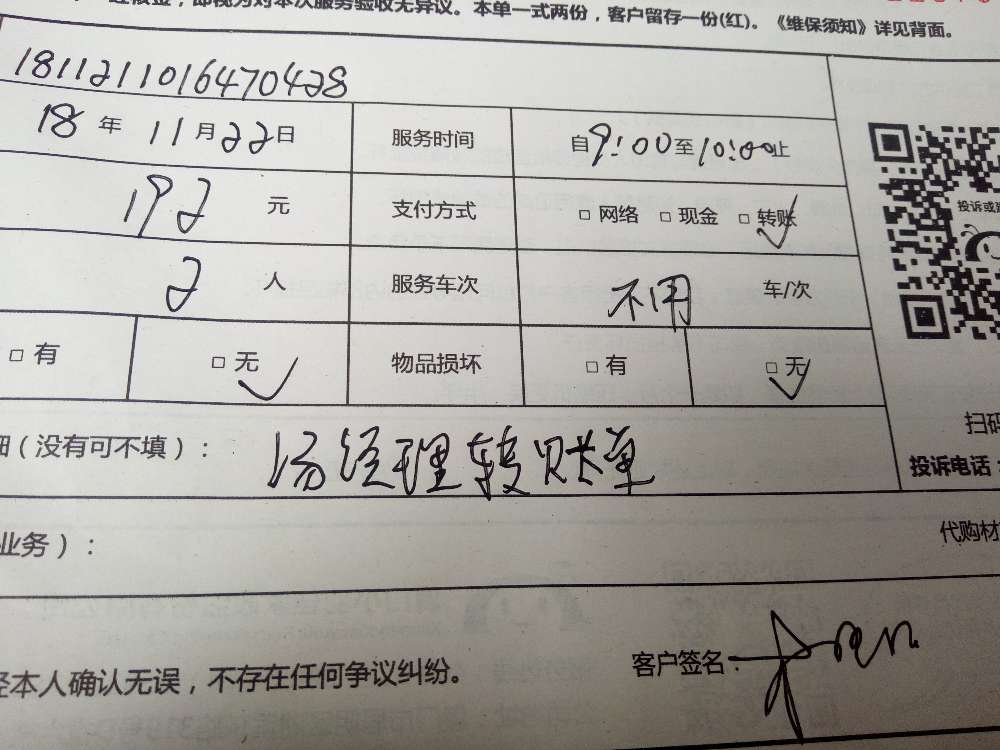 即视为对本次服务验收无异议。本单一式两份，客户留存一份(红)。《维保须知》详见背面。
1811211016470428
18 年 11 月 22 日 服务时间 自 9:00 至 10:00 止
192 元 支付方式 □ 网络 □ 现金 □ 转账
2 人 服务车次 不用 车/次
□ 有 □ 无 物品损坏 □ 有 □ 无
投诉或
扫码
细（没有可不填）： 汤经理转账单
投诉电话：
业务）： 代购材
经本人确认无误，不存在任何争议纠纷。 客户签名：